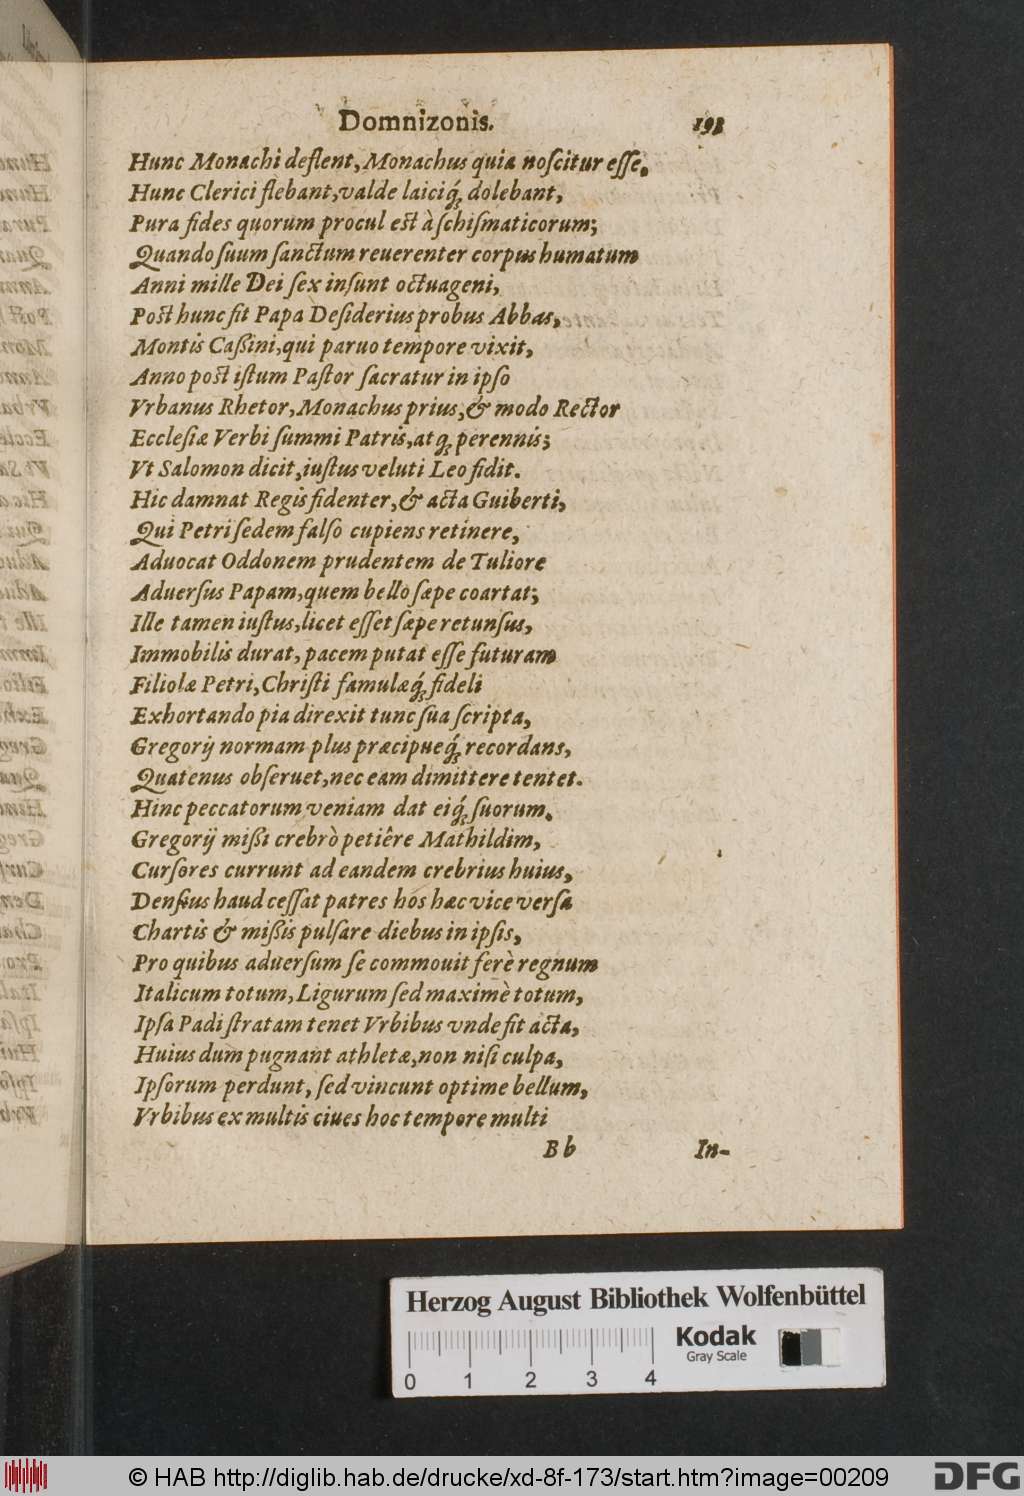 Domnizonis. 193
Hunc Monachi deflent, Monachus quia noſcitur eſſe,
Hunc Clerici flebant, valde laiciq́; dolebant,
Pura fides quorum procul est à ſchiſmaticorum;
Quando ſuum ſanctum reuerenter corpus humatum
Anni mille Dei ſex inſunt octuageni,
Post hunc fit Papa Deſiderius probus Abbas,
Montis Caßini, qui paruo tempore vixit,
Anno post iſtum Paſtor ſacratur in ipſo
Vrbanus Rhetor, Monachus prius, & modo Rector
Eccleſiæ Verbi ſummi Patris, atq; perennis;
Vt Salomon dicit, iuſtus veluti Leo fidit.
Hic damnat Regis fidenter, & acta Guiberti,
Qui Petri ſedem falſo cupiens retinere,
Aduocat Oddonem prudentem de Tuliore
Aduerſus Papam, quem bello ſæpe coartat;
Ille tamen iuſtus, licet eſſet ſæpe retunſus,
Immobilis durat, pacem putat eſſe futuram
Filiolæ Petri, Chriſti famulæq́; fideli
Exhortando pia direxit tunc ſua ſcripta,
Gregorij normam plus præcipueq́; recordans,
Quatenus obſeruet, nec eam dimittere tentet.
Hinc peccatorum veniam dat eiq́; ſuorum.
Gregorij mißi crebrò petiêre Mathildim,
Curſores currunt ad eandem crebrius huius,
Denſius haud ceſſat patres hos hac vice verſa
Chartis & mißis pulſare diebus in ipſis,
Pro quibus aduerſum ſe commouit ferè regnum
Italicum totum, Ligurum ſed maximè totum,
Ipſa Padi ſtratam tenet Vrbibus vnde fit acta,
Huius dum pugnant athletæ, non niſi culpa,
Ipſorum perdunt, ſed vincunt optime bellum,
Vrbibus ex multis ciues hoc tempore multi
B b In-
Herzog August Bibliothek Wolfenbüttel
Kodak
Gray Scale
0 1 2 3 4
© HAB http://diglib.hab.de/drucke/xd-8f-173/start.htm?image=00209
DFG